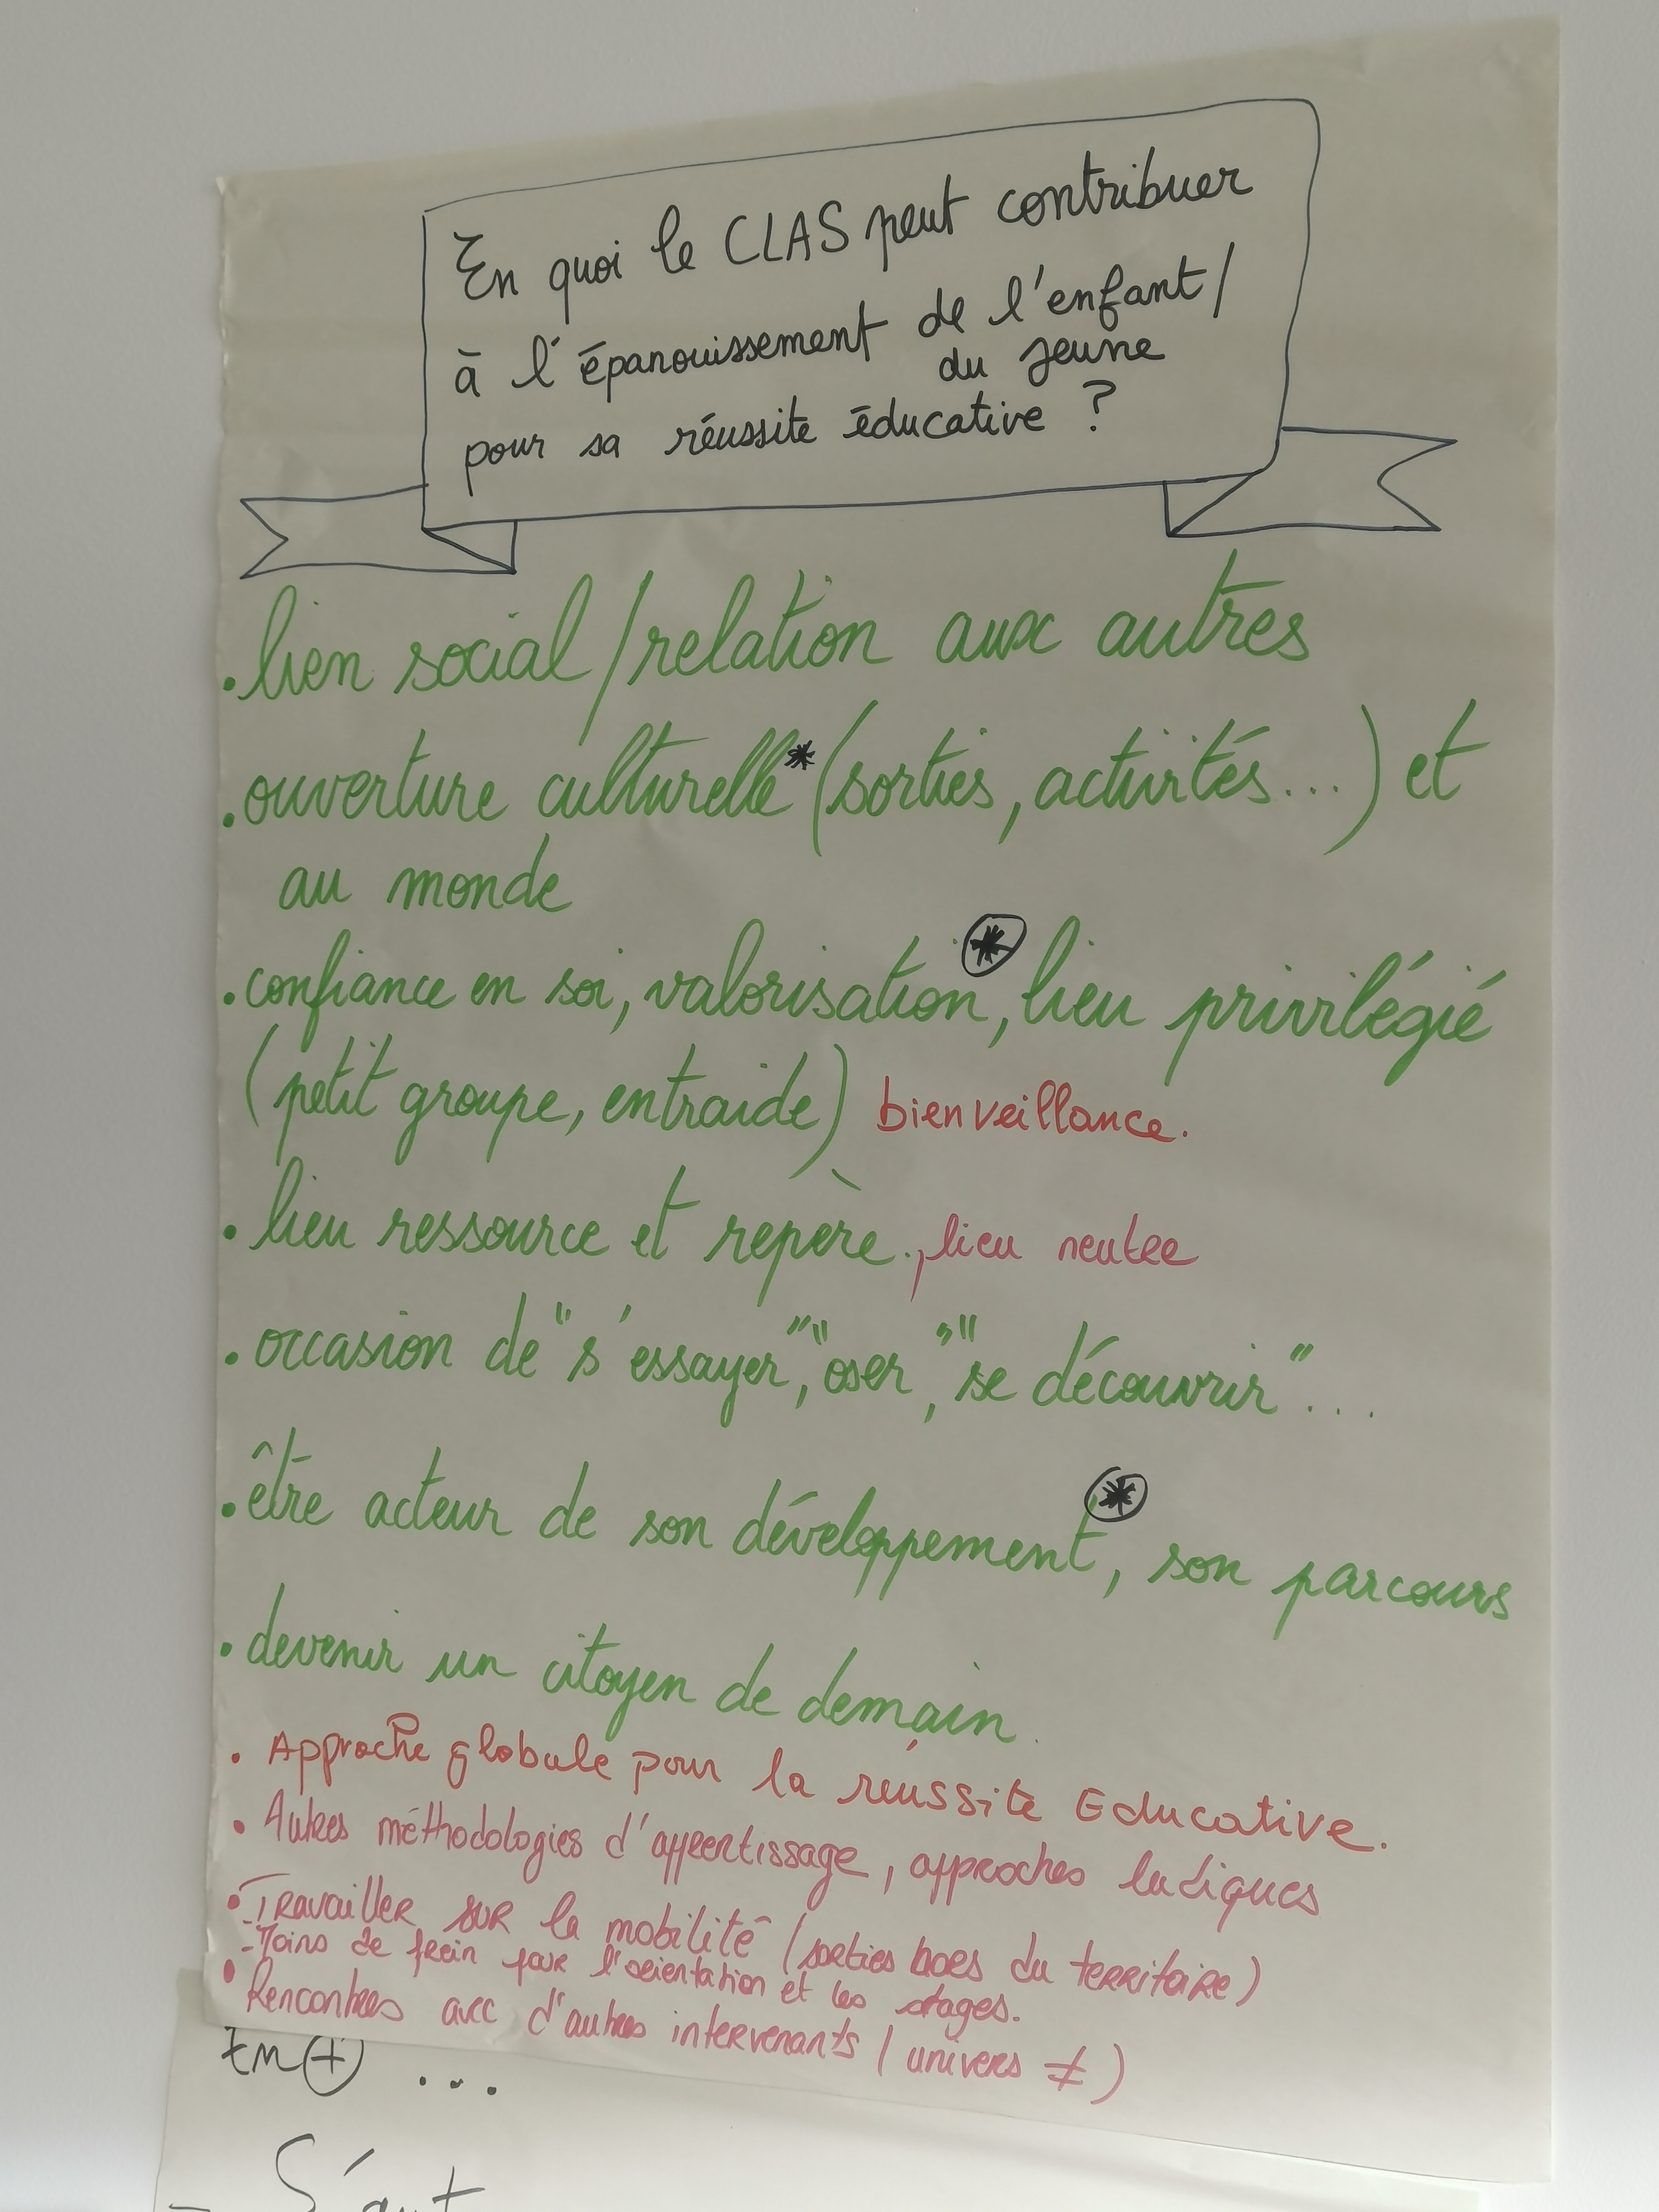 En quoi le CLAS peut contribuer
à l'épanouissement de l'enfant/
du jeune
pour sa réussite éducative ?
. lien social / relation aux autres
. ouverture culturelle* (sorties, activités...) et
au monde
. confiance en soi, valorisation*, lieu privilégié
(petit groupe, entraide) bienveillance.
. lieu ressource et repère., lieu neutre
. occasion de "s'essayer", "oser", "se découvrir"...
. être acteur de son développement*, son parcours
. devenir un citoyen de demain.
. Approche globale pour la réussite Educative.
. Autres méthodologies d'apprentissage, approches ludiques
. Travailler sur la mobilité (sorties hors du territoire)
- Moins de frein pour l'orientation et les stages.
. Rencontres avec d'autres intervenants (univers ≠)
En ⊕ ...